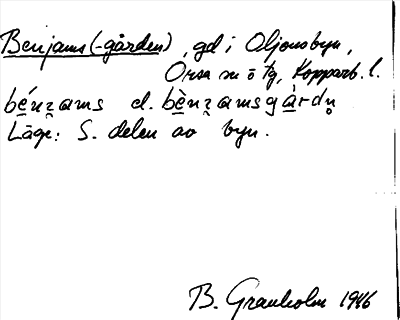 Benjams (-gården), gd i Oljonsbyn,
Orsa sn o tg, Kopparb. l.
bénz̨ams d. bènz̨amsgàrdn̥
Läge: S. delen av byn.
B. Granholm 1946